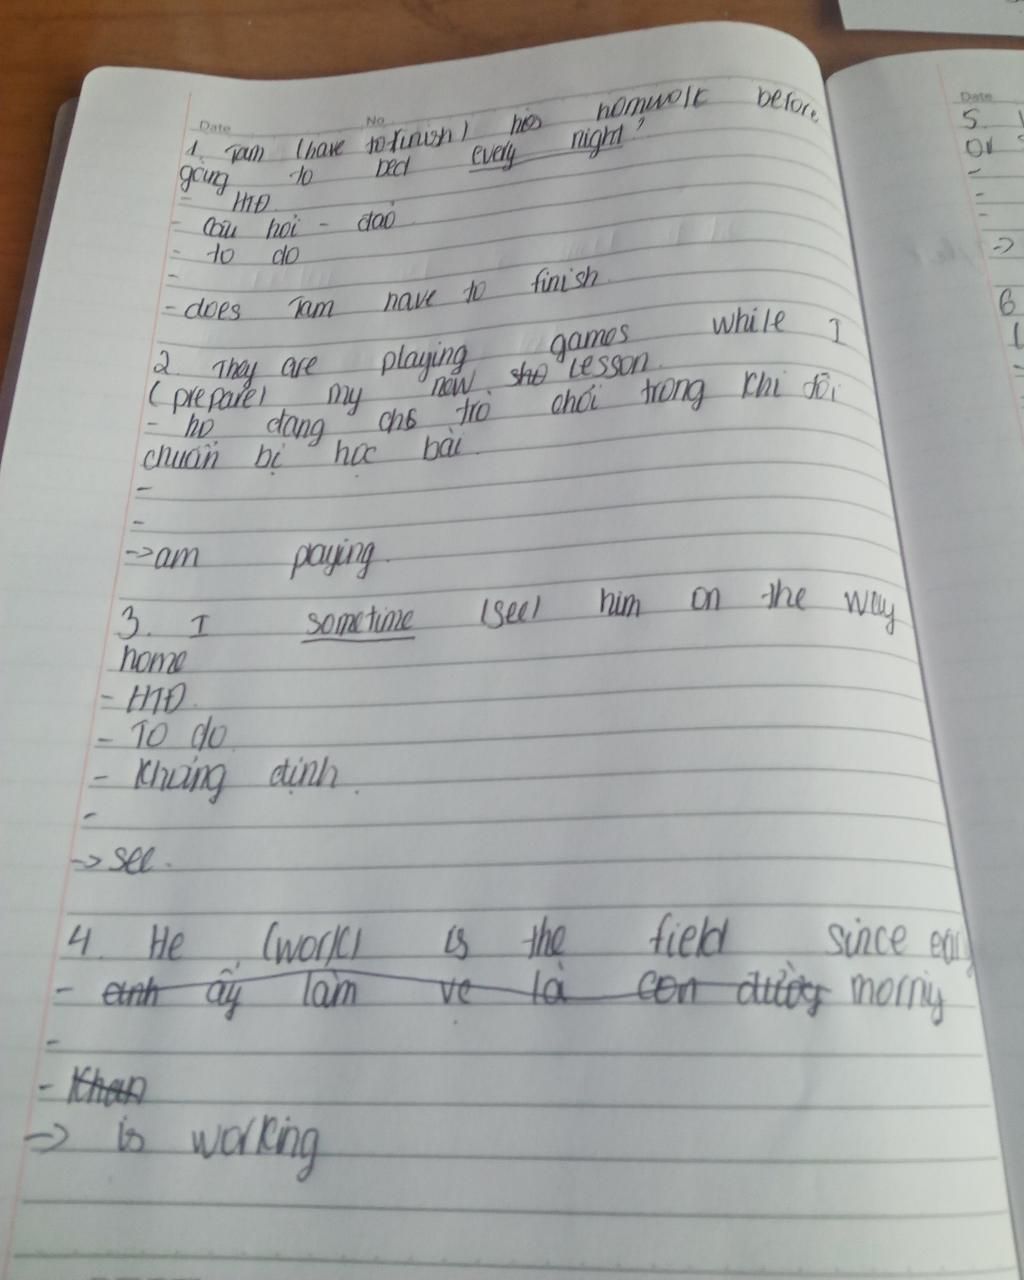 Date No
1. Tam (have to finish) his homwolk before
going to bed every night?
- HTĐ
- Câu hỏi - đảo
- to do
-
- does Tam have to finish
2. They are playing games while I
(prepare) my new lesson.
- họ đang chơ trò chơi trong khi tôi
chuẩn bị học bài.
-
-
-> am paying.
3. I sometime (see) him on the way
home
- HTĐ.
- To do
- Khẳng định.
-
-> see.
4. He (work) is the field since
- anh ấy làm ve là con đường morniy
-
- Khan
=> is working
Date
5.
Or
-
-
-
=>
6